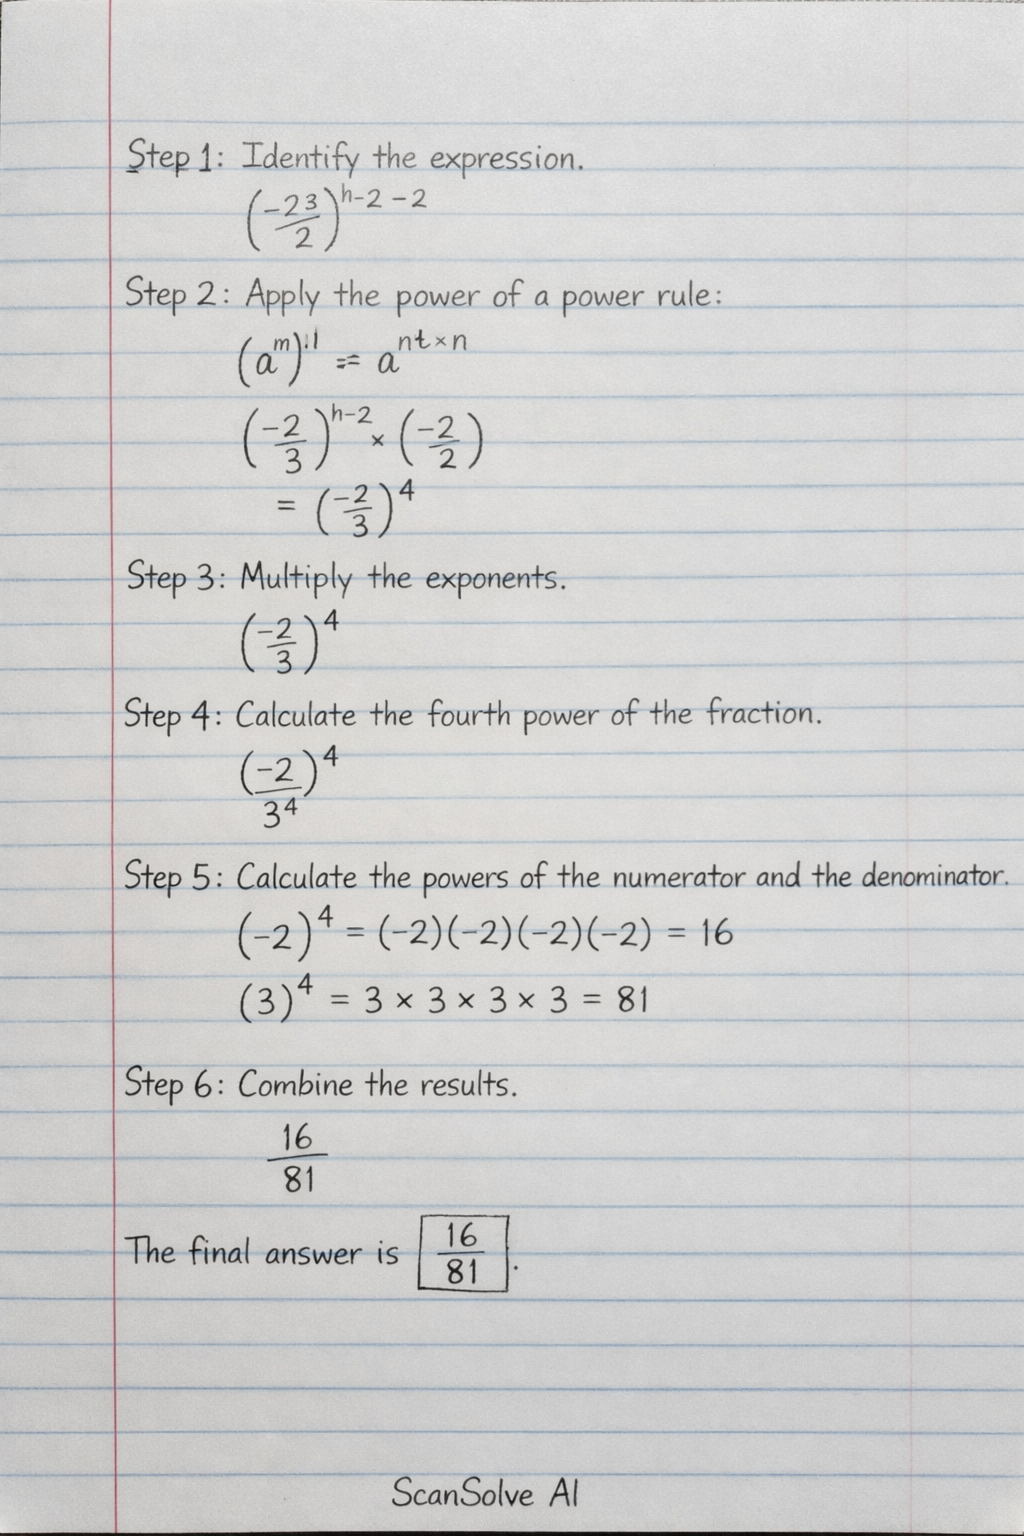 Step 1: Identify the expression.
(-23/2)^h-2 -2
Step 2: Apply the power of a power rule:
(a^m)^:1 == a^nt×n
(-2/3)^h-2 × (-2/2)
= (-2/3)^4
Step 3: Multiply the exponents.
(-2/3)^4
Step 4: Calculate the fourth power of the fraction.
(-2)^4
3^4
Step 5: Calculate the powers of the numerator and the denominator.
(-2)^4 = (-2)(-2)(-2)(-2) = 16
(3)^4 = 3 × 3 × 3 × 3 = 81
Step 6: Combine the results.
16
81
The final answer is 16/81.
ScanSolve AI